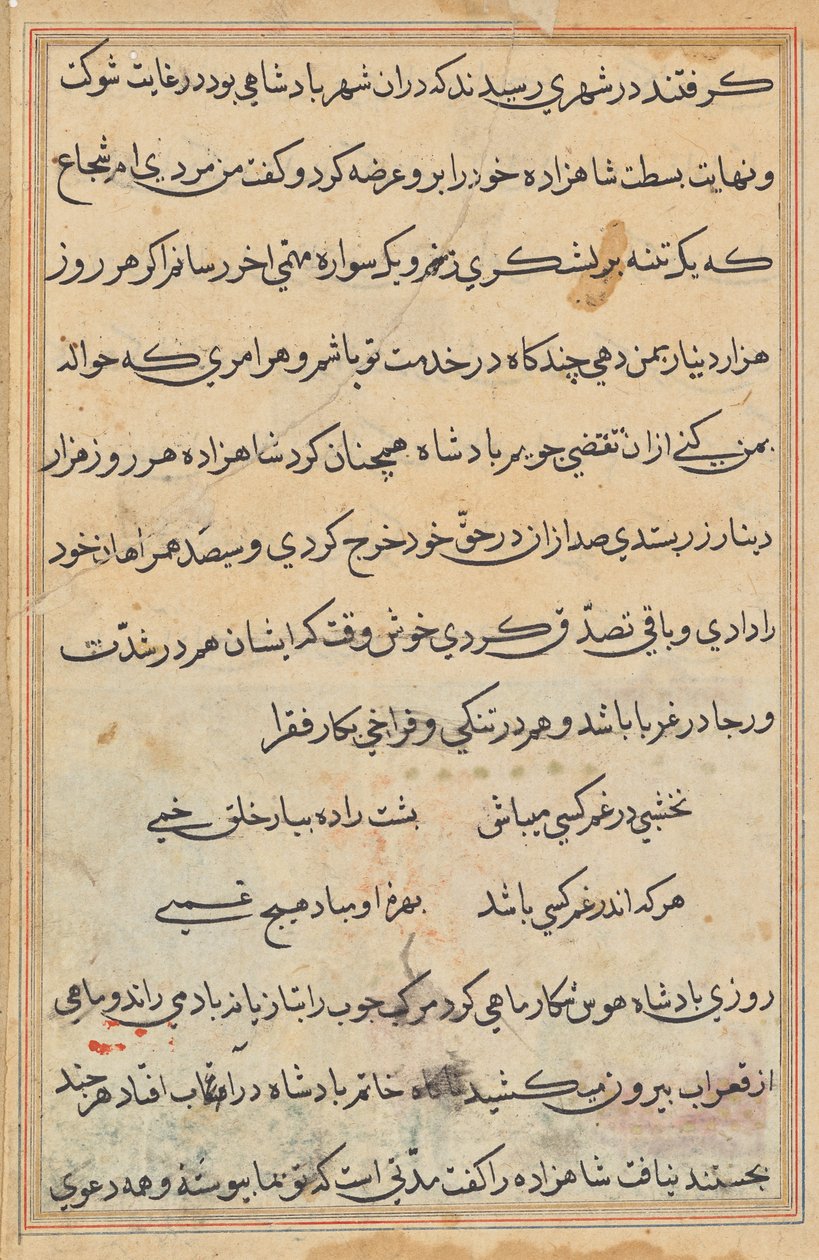 کرفتند در شهری رسیدند که دران شهر بادشاهی بود در غایت شوکت
و نهایت بسطت شاهزاده خود را برو عرضه کرد و کفت من مردی ام شجاع
که یک تنه بر لشکری زنم و یک سواره مهمّی اخر رسانم اکر هر روز
هزار دینار بمن دهی چند کاه در خدمت تو باشم و هر امری که حواله
بمن کنے ازان تفصّی جویم بادشاه همچنان کرد شاهزاده هر روز هزار
دینار زر بستدی صد ازان در حقّ خود خرج کردی و سیصد همراهان خود
را دادی و باقی تصدّق کردی خوش وقت کرا ایشان هم در شدّت
و رجا در غربا باشد و هم در تنکی و فراخی بکار فقرا
نخشبی در غم کسی میباش پشت را ده ببار خلق خمے
هر که اندر غم کسی باشد بهرهٔ او مباد هیچ غمے
روزی بادشاه هوس شکار ماهی کرد مرکب چوب را بتازیانه باد می راند و ماهی
از قعر اب بیرون می کشید ناکاه خاتم بادشاه در آب افتاد هر چند
بجستند نیافت شاهزاده را کفت مدّتی است که تو نما بیوسته و همه دعوی